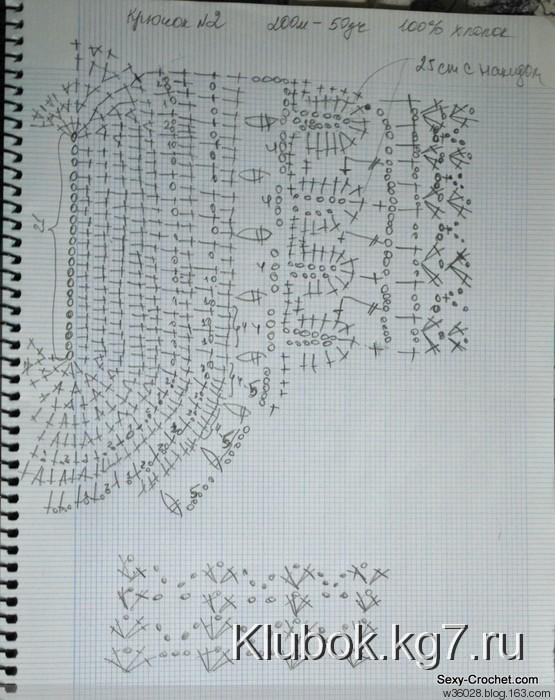 Крючок №2 200м - 50гр 100% хлопок
25 ст с накидом
21
4
4
4
4 4
4
5
5
5
Klubok.kg7.ru
Sexy-Crochet.com
w36028.blog.163.com